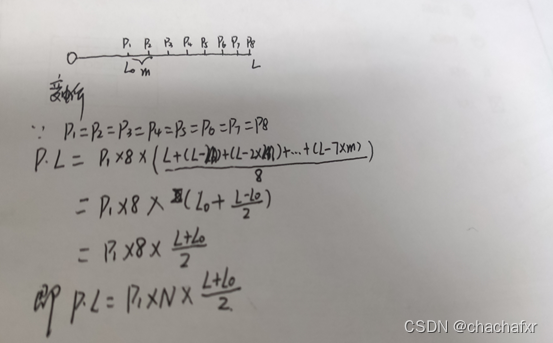 P₁ P₂ P₃ P₄ P₅ P₆ P₇ P₈
L₀ m L
变电所
∵ P₁=P₂=P₃=P₄=P₅=P₆=P₇=P8
P·L = P₁×8×(L+(L-m)+(L-2×m)+...+(L-7×m)/8)
= P₁×8×(L₀+L-L₀/2)
= P₁×8×L+L₀/2
即 P·L=P₁×N×L+L₀/2
CSDN @chachafxr